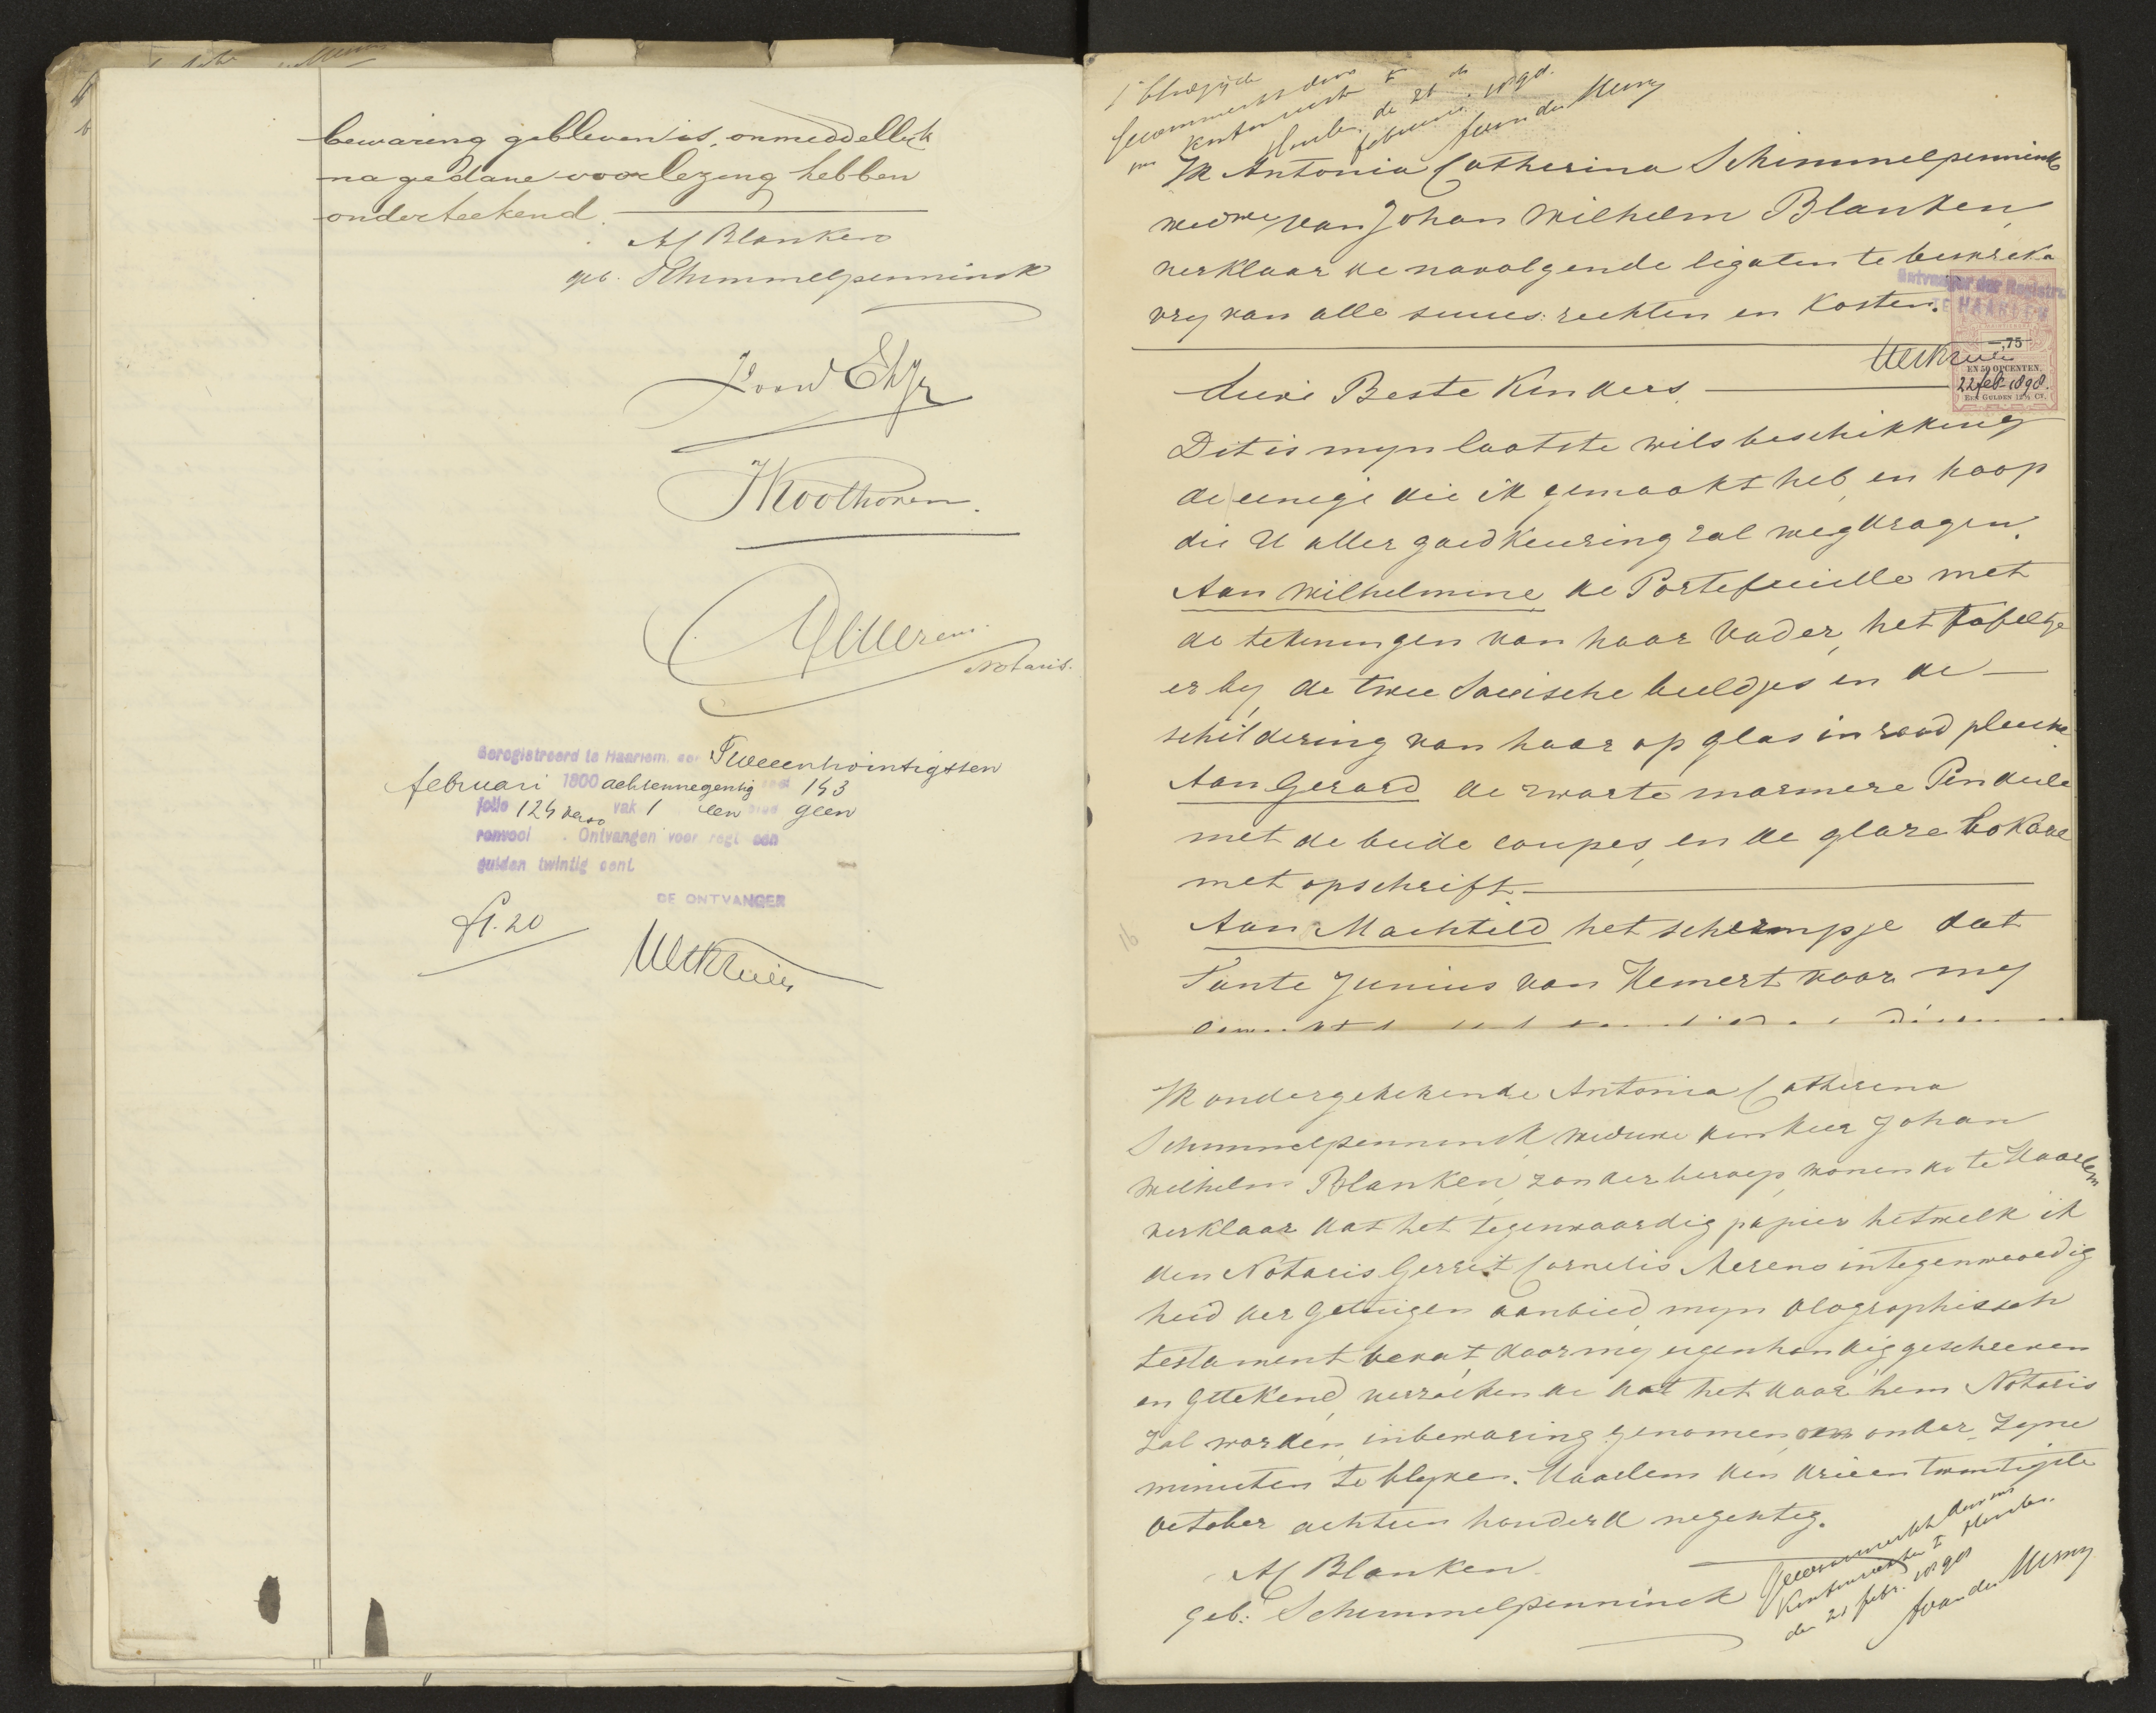 bewaring gebleven is, onmiddellijk
na gedane voorlezing hebben
onderteekend.
AC Blanken
geb. Schimmelpenninck
JKoothoven.
GCMerens.
Notaris.
Geregistreerd te Haarlem, den Tweeentwintigsten
februari 1800 achtennegentig deel 143
folio 124 verso vak 1 een blad geen
renvooi. Ontvangen voor regt een
gulden twintig cent.
DE ONTVANGER
f1.20
1e bladzijde
Gewaarmerkt door
ons Kantonrechter te
Haarlem, de 21 sten
februari 1898.
Ik Antonia Catherina Schimmelpenninck
wedwe van Johan Wilhelm Blanken,
verklaar de navolgende legaten te bespreken
vry van alle succes: rechten en Kosten.
Ontvanger der Registr.
TE HAARLEM
—,75
EN 50 OPCENTEN.
22 feb 1898.
EEN GULDEN 12½ CT.
Lieve Beste Kinders.
Dit is myn laatste wilsbeschikking
de eenige die ik gemaakt heb, en hoop
die U aller goedkeuring zal wegdragen.
Aan Wilhelmine de Portefeuille met
de tekeningen van haar Vader, het tafeltje
er by, de twee Saxische beeldjes en de
schildering van haar op glas in rood pluche.
Aan Gerard de zwarte marmere Pendule
met de beide coupes, en de glaze bokaal
met opschrift.
Aan Machteld het schermpje dat
Tante Junius van Hemert voor my
16
Ik ondergetekende Antonia Catherina
Schimmelpenninck, weduwe den heer Johan
Wilhelm Blanken, zonder beroep, wonende te Haarlem
verklaar dat het tegenwoordig papier hetwelk ik
den Notaris Gerrit Cornelis Merens in tegenwoordig
heid der getuigen aanbied, myn olographisch
testament bevat door my eigenhandig geschreven
en getekend, verzoekende dat het door hem Notaris
zal worden in bewaring genomen, om onder zyne
minuten te blyven. Haarlem den drieentwintigste
october achtien honderd negentig.
AC Blanken
geb: Schimmelpenninck
Gewaarmerkt door ons
Kantonrechter te Haarlem.
den 21 febr. 1898